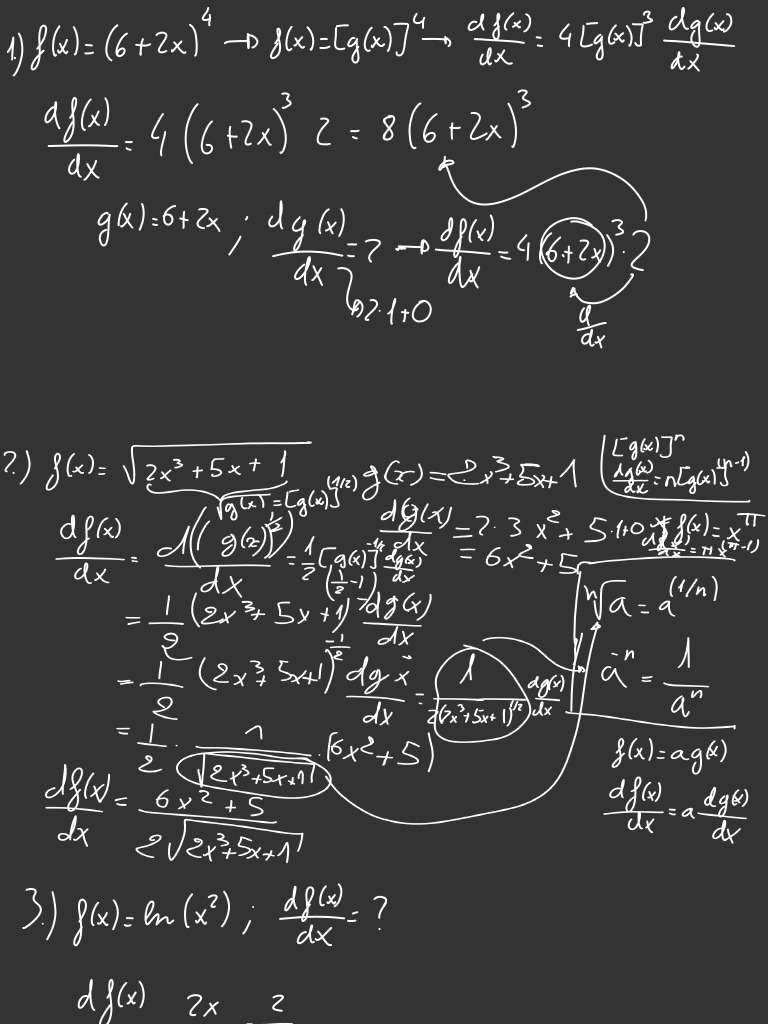 1.) f(x) = (6+2x)^4 → f(x) = [g(x)]^4 → df(x)/dx = 4 [g(x)]^3 dg(x)/dx
df(x)/dx = 4 (6+2x)^3 2 = 8 (6+2x)^3
g(x) = 6+2x ; dg(x)/dx = 2 → df(x)/dx = 4 (6+2x)^3 · 2
2·1+0
d/dx
2.) f(x) = √(2x^3 + 5x + 1)
√g(x) = [g(x)]^(1/2)
g(x) = 2x^3+5x+1
[g(x)]^n
dg(x)/dx = n[g(x)]^(n-1)
df(x)/dx = d((g(x))^1/2)/dx = 1/2 [g(x)]^-1/2 dg(x)/dx
dg(x)/dx = 2·3 x^2 + 5·1+0
= 6x^2+5
f(x) = x^π
df(x)/dx = π x^(π-1)
= 1/2 (2x^3+5x+1)^(1/2 -1) dg(x)/dx
ⁿ√a = a^(1/n)
= 1/2 (2x^3+5x+1)^-1/2 dg x/dx = 1/(2(2x^3+5x+1)^1/2) dg(x)/dx
a^-n = 1/a^n
= 1/2 · 1/√(2x^3+5x+1) · (6x^2+5)
f(x) = a g(x)
df(x)/dx = (6x^2+5)/(2√(2x^3+5x+1))
df(x)/dx = a dg(x)/dx
3.) f(x) = ln(x^2) ; df(x)/dx = ?
df(x) 2x 2